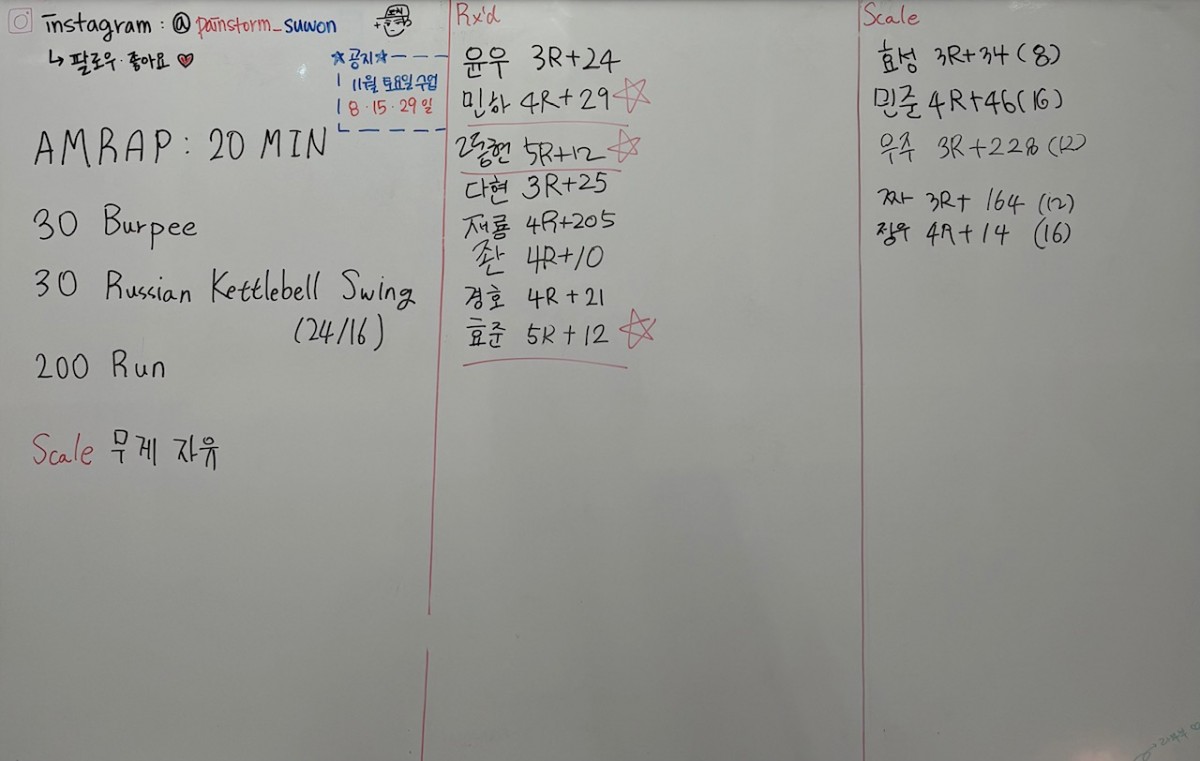 instagram : @ painstorm_suwon
↳ 팔로우·좋아요 ♥
☆공지☆
11월 토요일 수업
8·15·29일
AMRAP : 20 MIN
30 Burpee
30 Russian Kettlebell Swing
(24/16)
200 Run
Scale 무게 자유
Rx'd
윤우 3R+24
민하 4R+29 ☆
동현 5R+12 ☆
다현 3R+25
재룡 4R+205
4R+10
경호 4R+21
효준 5R+12 ☆
Scale
효성 3R+34 (8)
민준 4R+46 (16)
우주 3R+228 (12)
3R+164 (12)
4R+14 (16)